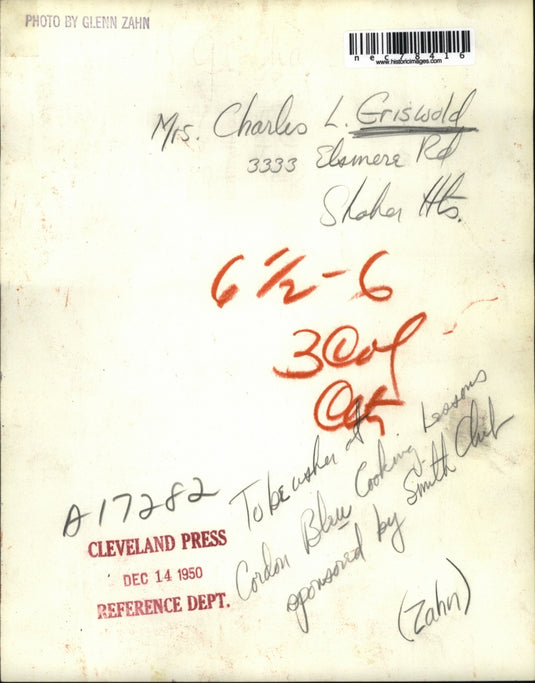 PHOTO BY GLENN ZAHN
nec78416
www.historicimages.com
Mrs. Charles L. Griswold
3333 Elsmere Rd
Shaker Hts.
6 1/2 - 6
3 Col
A17282
To be usher at
Cordon Bleu Cooking Lessons
sponsored by Smith Club
(Zahn)
CLEVELAND PRESS
DEC 14 1950
REFERENCE DEPT.